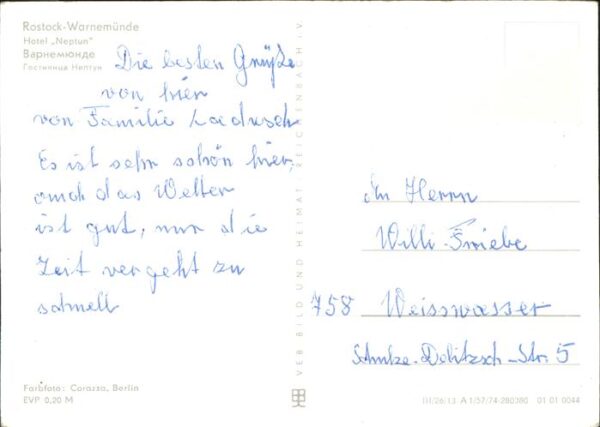 Rostock-Warnemünde
Hotel „Neptun"
Варнемюнде
Гостиница Нептун
Die besten Grüße
von hier
von Familie
Es ist sehr schön hier,
auch das Wetter
ist gut, nur die
Zeit vergeht zu
schnell
Farbfoto: Corazza, Berlin
EVP 0,20 M
VEB BILD UND HEIMAT REICHENBACH I. V.
An Herrn
Willi Friebe
758 Weisswasser
Schulze-Delitzsch-Str. 5
III/26/13 A 1/57/74-280380 01 01 0044